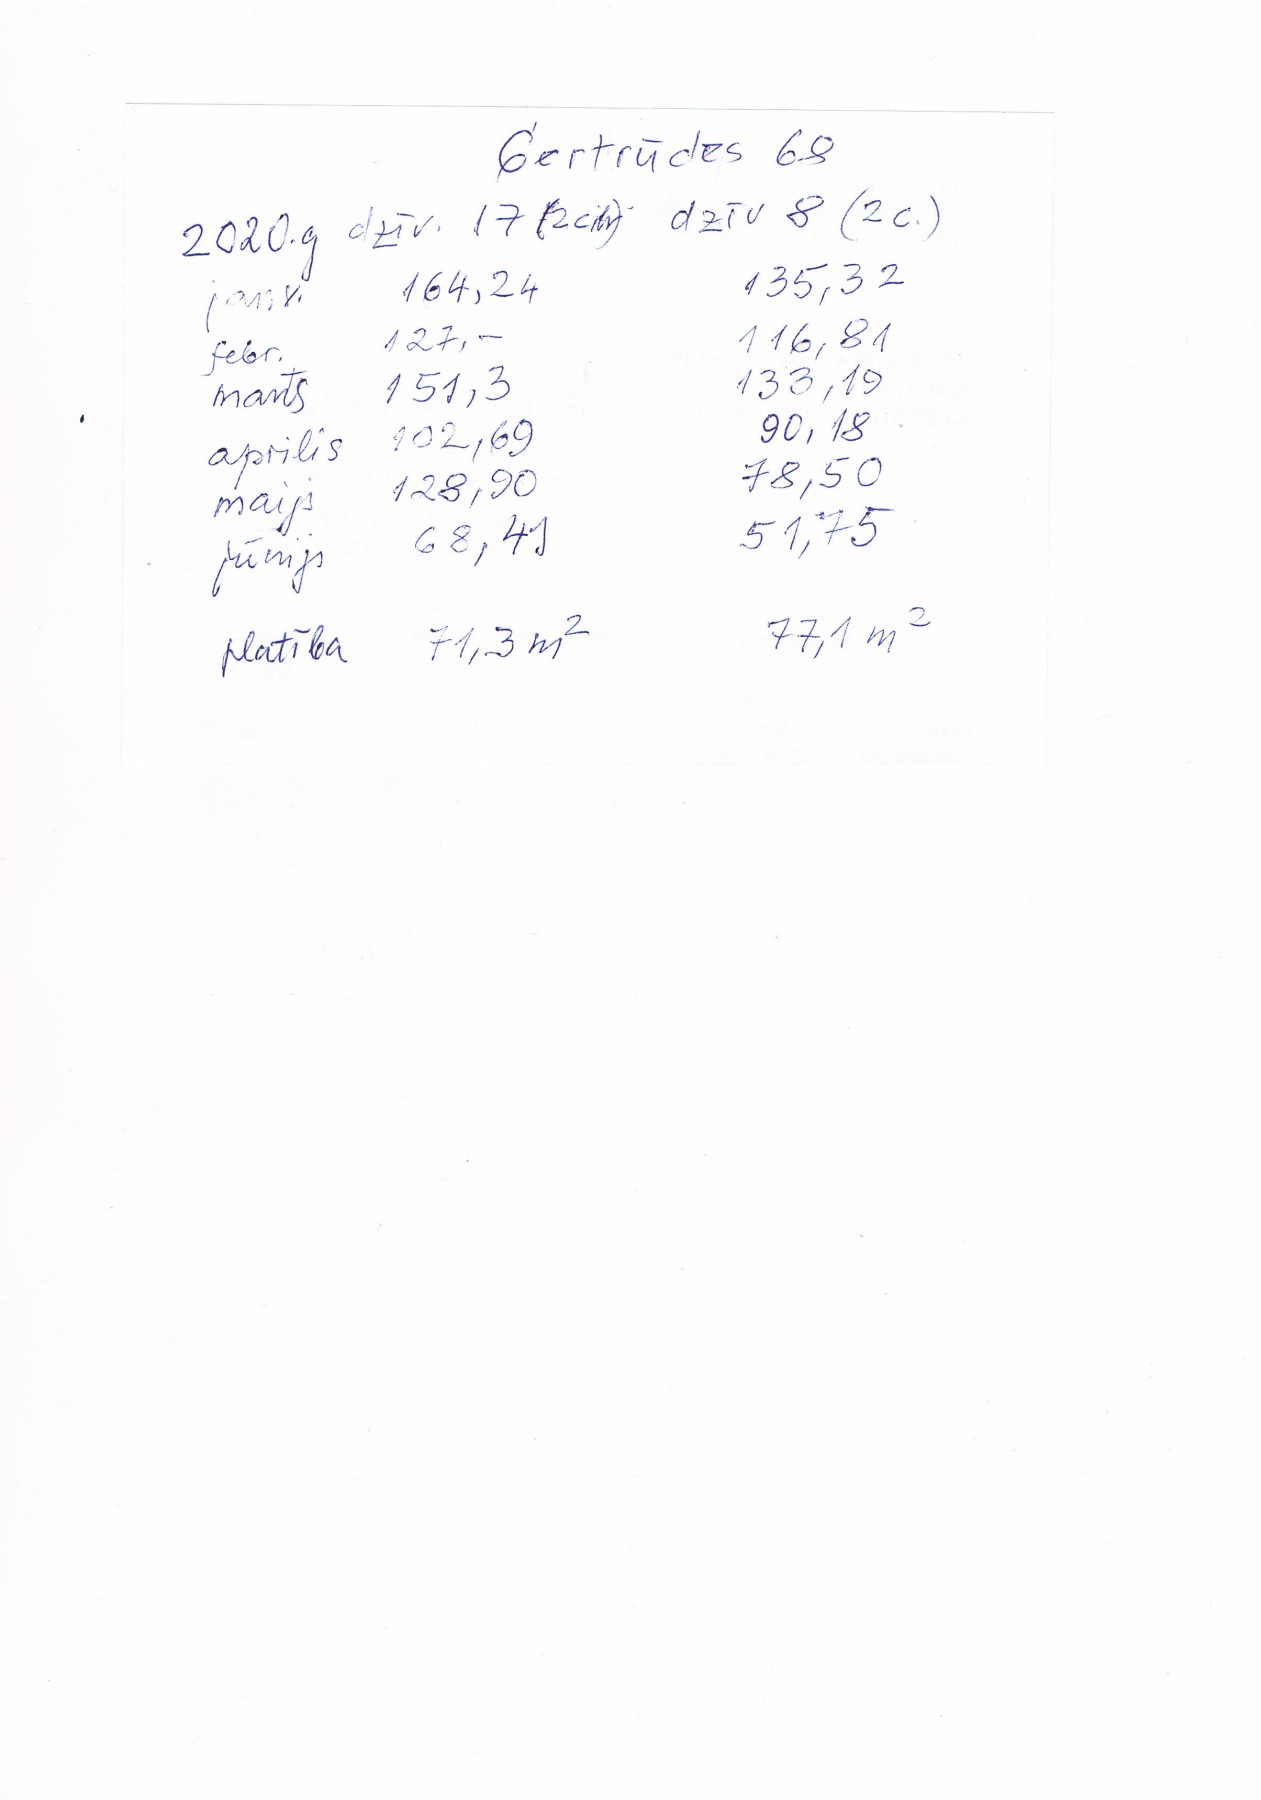 Ģertrūdes 68
2020.g dzīv. 17 dzīv 8 (2 c.)
janv. 164,24 135,32
febr. 127,- 116,81
marts 151,3 133,19
aprilis 102,69 90,18
maijs 128,90 78,50
jūnijs 68,41 51,75
platība 71,3 m² 77,1 m²